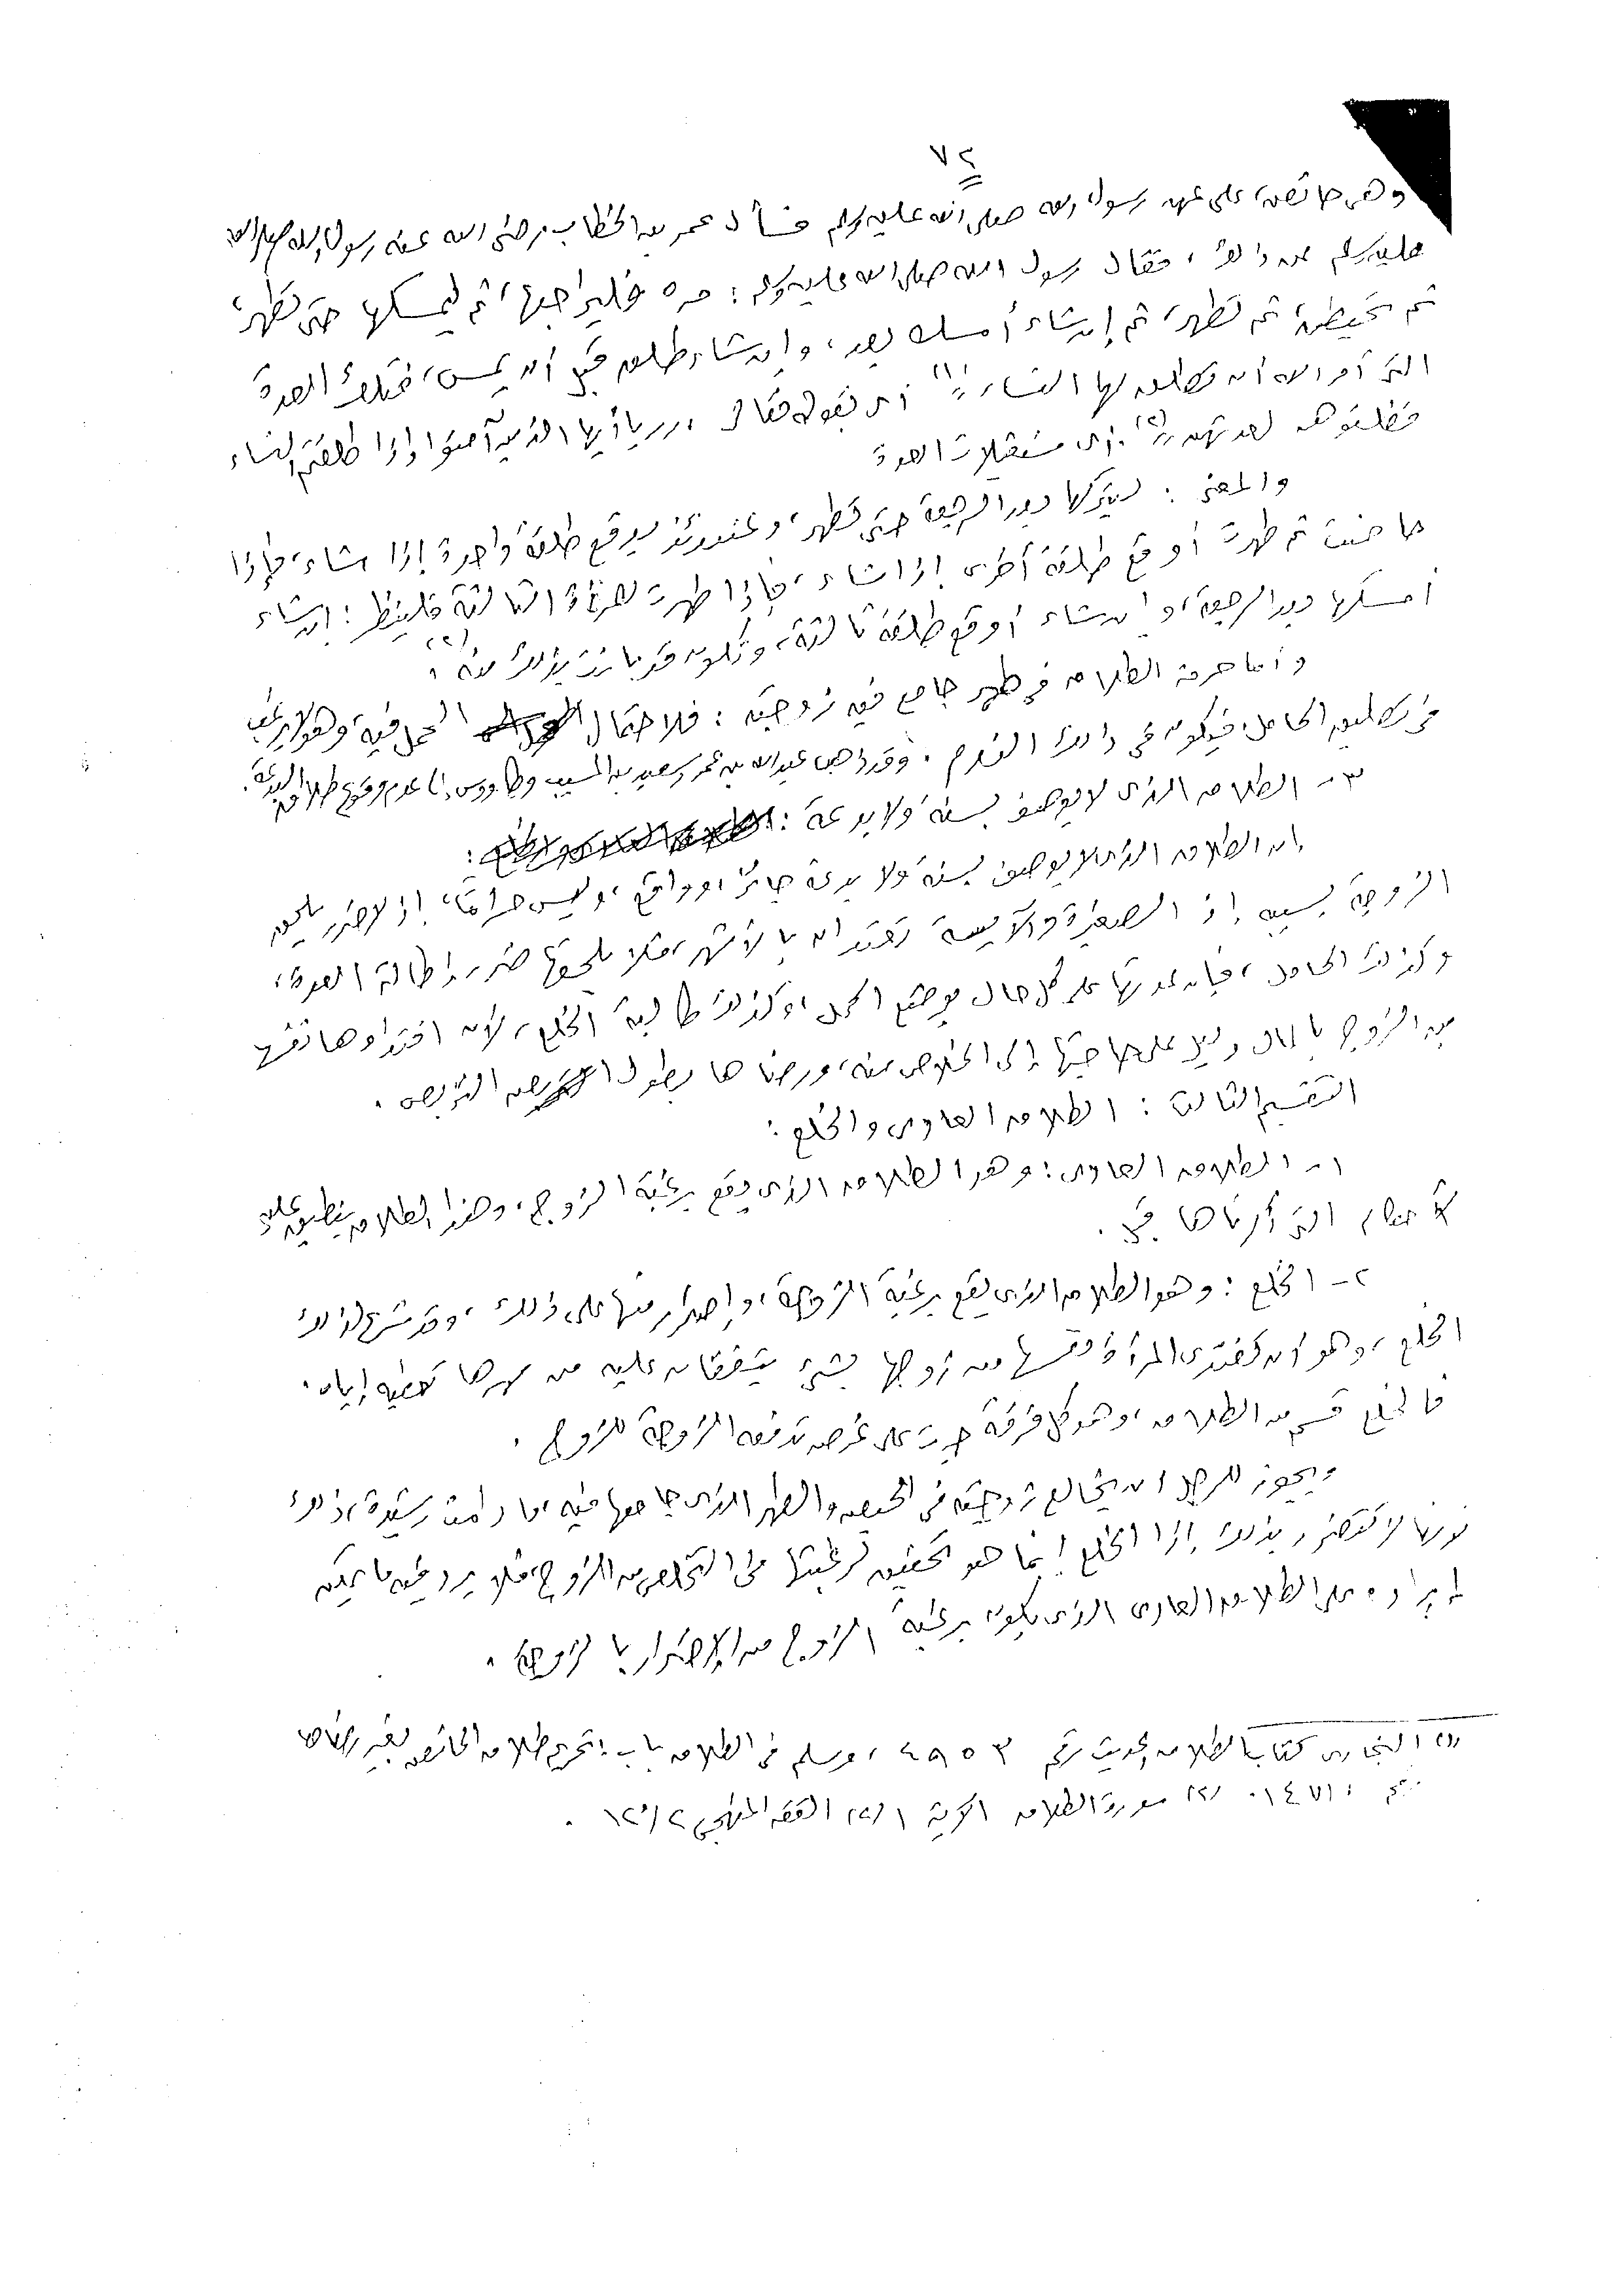 ٧٢
وهي حائض، على عهد رسول الله صلى الله عليه وسلم فسأل عمر بن الخطاب رضي الله عنه رسول الله صلى الله
عليه وسلم عن ذلك، فقال رسول الله صلى الله عليه وسلم: مره فليراجعها، ثم ليمسكها حتى تطهر،
ثم تحيض، ثم تطهر، ثم إن شاء أمسك بعد، وإن شاء طلق قبل أن يمس، فتلك العدة
التي أمر الله أن تطلق لها النساء" (١) أي بقوله تعالى "يا أيها الذين آمنوا إذا طلقتم النساء
فطلقوهن لعدتهن" (٢) أي مستقبلات العدة
والمعنى: ليتركها بعد الرجعة حتى تطهر، وعندئذ يوقع طلقة واحدة إذا شاء، فإذا
حاضت ثم طهرت أوقع طلقة أخرى إذا شاء، فإذا طهرت للمرة الثالثة فلينظر: إن شاء
أمسكها بعد الرجعة، وإن شاء أوقع طلقة ثالثة، وتكون قد بانت بذلك منه (٣).
وأما حرمة الطلاق في طهر جامع فيه زوجته: فلاحتمال الحمل فيه، وهو لا يرغب
في تطليق الحامل، فيكون في ذلك الندم. وقد ذهب عبد الله بن عمر وسعيد بن المسيب وطاووس إلى عدم وقوع طلاق البدعة.
٣- الطلاق الذي لا يوصف بسنة ولا بدعة:
إن الطلاق الذي لا يوصف بسنة ولا بدعة جائز، وواقع، وليس حراماً، إذ لا ضرر يلحق
الزوجة بسببه إذ الصغيرة والآيسة تعتدان بالأشهر، فلا يلحقها ضرر إطالة العدة،
وكذلك الحامل، فإن عدتها على كل حال بوضع الحمل، وكذلك طالبة الخلع، لأن افتداءها نفسها
من الزوج بالمال دليل على حاجتها إلى الخلاص منه، ورضاها بطول التربص.
التقسيم الثالث: الطلاق العادي والخلع:
١- الطلاق العادي: وهو الطلاق الذي يقع برغبة الزوج، وهذا الطلاق ينطبق عليه
الأحكام التي ذكرناها قبل.
٢- الخلع: وهو الطلاق الذي يقع برغبة الزوجة، وإصرار منها على ذلك، وقد شرع لذلك
الخلع، وهو أن تفتدي المرأة نفسها من زوجها بشيء يتفقان عليه من مهرها تعطيه إياه.
فالخلع قسم من الطلاق، وهو كل فرقة جرت على عوض تدفعه الزوجة للزوج.
ويجوز للرجل أن يخالع زوجته في الحيض والطهر الذي جامعها فيه، ما دامت رشيدة، ذلك
لأنها لا تتضرر بذلك، إذا الخلع إنما هو تحقيق لرغبتها في التخلص من الزوج، فلا يرد فيه ما يمكن
إيراده على الطلاق العادي الذي يكون برغبة الزوج من الإضرار بالزوجة.
(١) البخاري كتاب الطلاق، الحديث رقم ٤٩٥٣، ومسلم في الطلاق باب: تحريم طلاق الحائض بغير رضاها
رقم: ١٤٧١. (٢) سورة الطلاق الآية ١ (٣) الفقه المنهجي ١٢٥/٢.